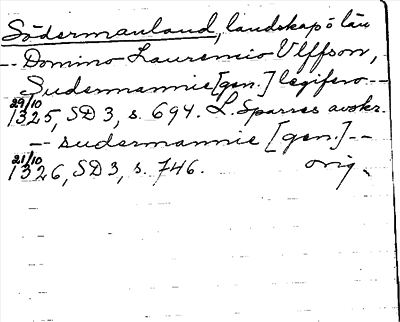 Södermanland, landskap o län
-- Domino Laurencio Ulffson,
Sudermannie [gen.] legifero --
29/10 1325, SD 3, s. 694. L. Sparres avskr.
-- sudermannie [gen.] --
21/10 1326, SD 3, s. 746. orig.